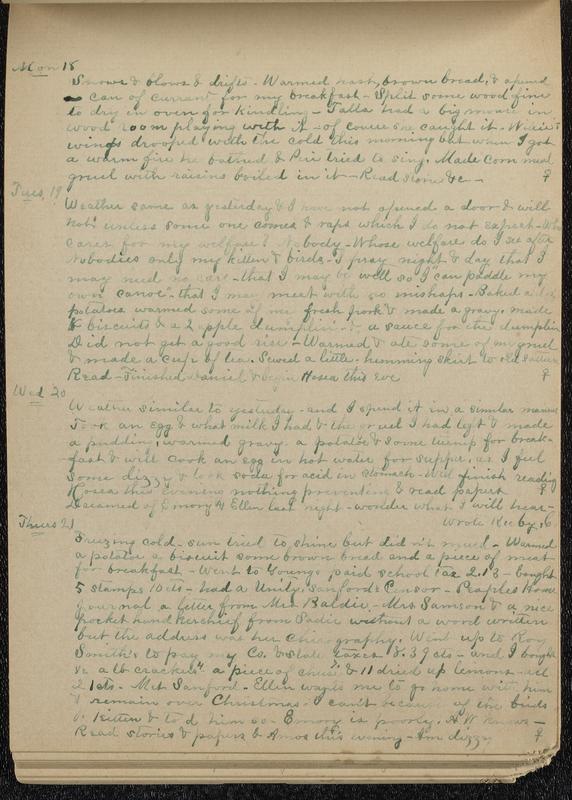 Mon 18
Snows & blows & drifts - Warmed hash, brown bread, & opened
can of currant for my breakfast - Split some wood fine
to dry in oven for kindling - Talla had a big mouse in
wood room playing with it - of course she caught it -
wings drooped with the cold this morning but when I got
a warm fire he bathed & Pen tried to sing. Made corn meal
gruel with raisins boiled in it - Read some &c - 
Tues, 19
Weather same as yesterday & I have not opened a door & will
not unless some one comes & raps which I do not expect - Who
cares for my welfare? Nobody - Whose welfare do I see after
Nobodies only my kitten & birds - I pray night & day that I
may need no care - that I may be well so I can paddle my
own canoe - that I may meet with no mishaps - Baked
potatoes warmed some of my fresh pork & made a gravy. made
biscuits & a 2 apple dumplin - & a sauce for the dumplin
Did not get a good rise - Warmed & ate some of my gruel
& made a cup of tea. Sewed a little - hemming skirt to old
Read - Finished Daniel & begin Hosea this eve
Wed 20
Weather similar to yesterday - and I spend it in a similar manner
Took an egg & what milk I had & the gruel I had left & made
a pudding, warmed gravy - a potatoe & some turnip for break-
fast & will cook an egg in hot water for supper. as I feel
some dizzy & took soda for acid in stomach - Will finish reading
Hosea this evening nothing preventing & read papers
Dreamed of Emory & Ellen last night - wonder what I will hear -
Wrote Rec by 26
Thurs 21
Freezing cold - sun tried to shine but did n't much - Warmed
a potatoe a biscuit some brown bread and a piece of meat
for breakfast - Went to Youngs, paid school tax 2.13 - bought
5 stamps 10 cts - had a Unity, Sanford's Censor - Peoples Home
Journal a letter from Mrs Baldie, - Mrs Samson & a nice
pocket handkerchief from Sadie without a word written
but the address was her chirography. Went up to Roy
Smith's to pay my Co. & State taxes 3.39 cts - and I bought
a lb crackers a piece of cheese, & 11 dried up lemons - all
21 cts - Met Sanford - Ellen wants me to go home with him
& remain over Christmas. I can't because of the birds
& kitten & told him so - Emory is poorly. H W knows -
Read stories & papers & Amos this evening - Am dizzy